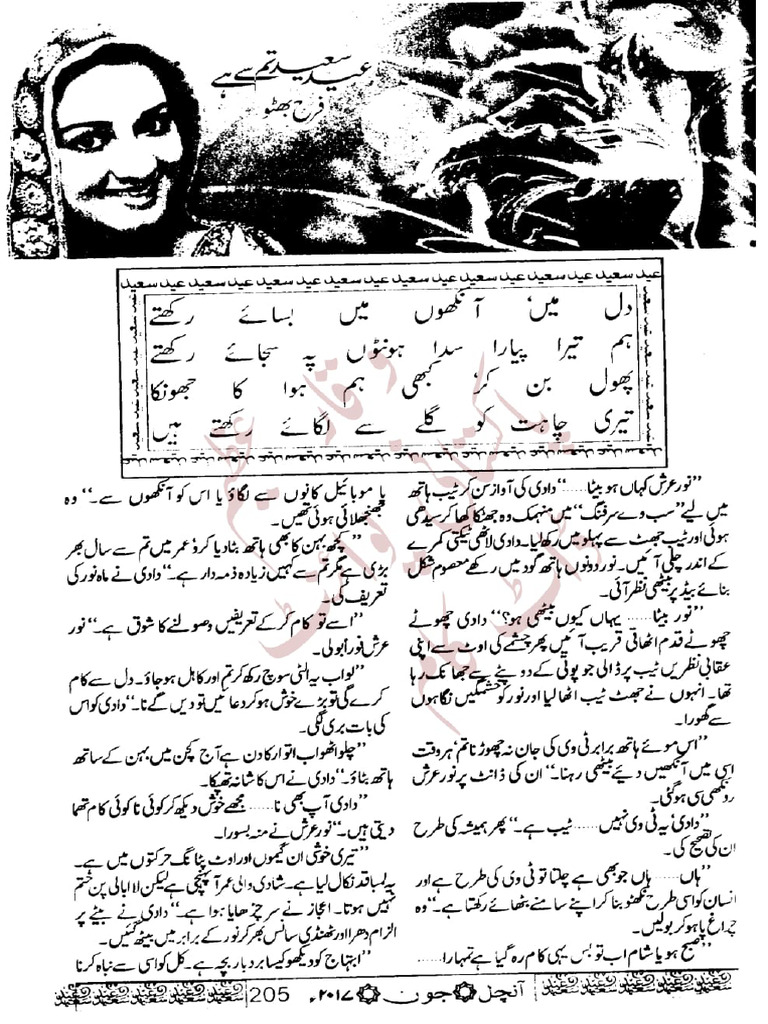 عید سعید تم سے ہے
فرح بھٹو
عید سعید عید سعید عید سعید عید سعید عید سعید عید سعید عید سعید عید سعید
دل میں، آنکھوں میں بسائے رکھتے
ہم تیرا پیارا سدا ہونٹوں پہ سجائے رکھتے
پھول بن کر، کبھی ہم ہوا کا جھونکا
تیری چاہت کو گلے سے لگائے رکھتے ہیں
”نور عرش کہاں ہو بیٹا......“ دادی کی آواز سن کر ٹیب ہاتھ
میں لیے ”سب وے سرفنگ“ میں منہمک وہ جھٹکا کھا کر سیدھی
ہوئی اور ٹیب جھٹ سے پہلو میں رکھ لیا۔ دادی لاٹھی ٹیکتی کمرے
کے اندر چلی آئیں۔ نور دونوں ہاتھ گود میں رکھے معصوم شکل
بنائے بیڈ پر بیٹھی نظر آئی۔
”نور بیٹا...... یہاں کیوں بیٹھی ہو؟“ دادی چھوٹے
چھوٹے قدم اٹھاتی قریب آئیں پھر چشمے کی اوٹ سے اپنی
عقابی نظریں ٹیب پر ڈالی جو پوتی کے دوپٹے سے جھانک رہا
تھا۔ انہوں نے جھٹ ٹیب اٹھا لیا اور نور کو خشمگیں نگاہوں
سے گھورا۔
”اس موئے ہاتھ برابر ٹی وی کی جان نہ چھوڑنا تم، ہر وقت
اسی میں آنکھیں دیئے بیٹھی رہنا۔“ ان کی ڈانٹ پر نور عرش
روٹھی سی ہوگئی۔
”دادی، یہ ٹی وی نہیں...... ٹیب ہے۔“ پھر ہمیشہ کی طرح
ان کی تصحیح کی۔
”ہاں...... ہاں جو بھی ہے چلتا تو ٹی وی کی طرح ہے اور
انسان کو اسی طرح نکھٹو بنا کر اپنے سامنے بٹھائے رکھتا ہے۔“ وہ
چراغ پا ہو کر بولیں۔
”صبح ہو یا شام اب تو بس یہی کام رہ گیا ہے تمہارا......
یا موبائیل کانوں سے لگاؤ یا اس کو آنکھوں سے۔“ وہ
جھنجھلائی ہوئی تھیں۔
”کچھ بہن کا بھی ہاتھ بٹا دیا کرو، عمر میں تم سے سال بھر
بڑی ہے مگر تم سے کہیں زیادہ ذمہ دار ہے۔“ دادی نے ماہ نور کی
تعریف کی۔
”اسے تو کام کر کے تعریفیں وصولنے کا شوق ہے۔“ نور
عرش فوراً بولی۔
”لو اب یہ الٹی سوچ رکھ کر تم اور کاہل ہو جاؤ۔ دل سے کام
کرے گی تو بڑے خوش ہو کر دعائیں تو دیں گے نا۔“ دادی کو اس
کی بات بری لگی۔
”چلو اٹھو اب اتوار کا دن ہے آج کچن میں بہن کے ساتھ
ہاتھ بٹاؤ۔“ دادی نے اس کا شانہ تھپکا۔
”دادی آپ بھی نا...... مجھے خوش دیکھ کر کوئی نا کوئی کام تھما
دیتی ہیں۔“ نور عرش نے منہ بسورا۔
”تیری خوشی ان گیموں اور اوٹ پٹانگ حرکتوں میں ہے۔
یہ لمبا قد نکال لیا ہے۔ شادی والی عمر آ پہنچی ہے لیکن لاابالی پن ختم
نہیں ہوتا۔ اعجاز نے سر چڑھایا ہوا ہے۔“ دادی نے بیٹے پر
الزام دھرا اور ٹھنڈی سانس بھر کر نور کے برابر میں بیٹھ گئیں۔
”ابتہاج کو دیکھو کیسا بردبار بچہ ہے۔ کل کو اسی سے نباہ کرنا
آنچل جون ۲۰۱۷ء 205